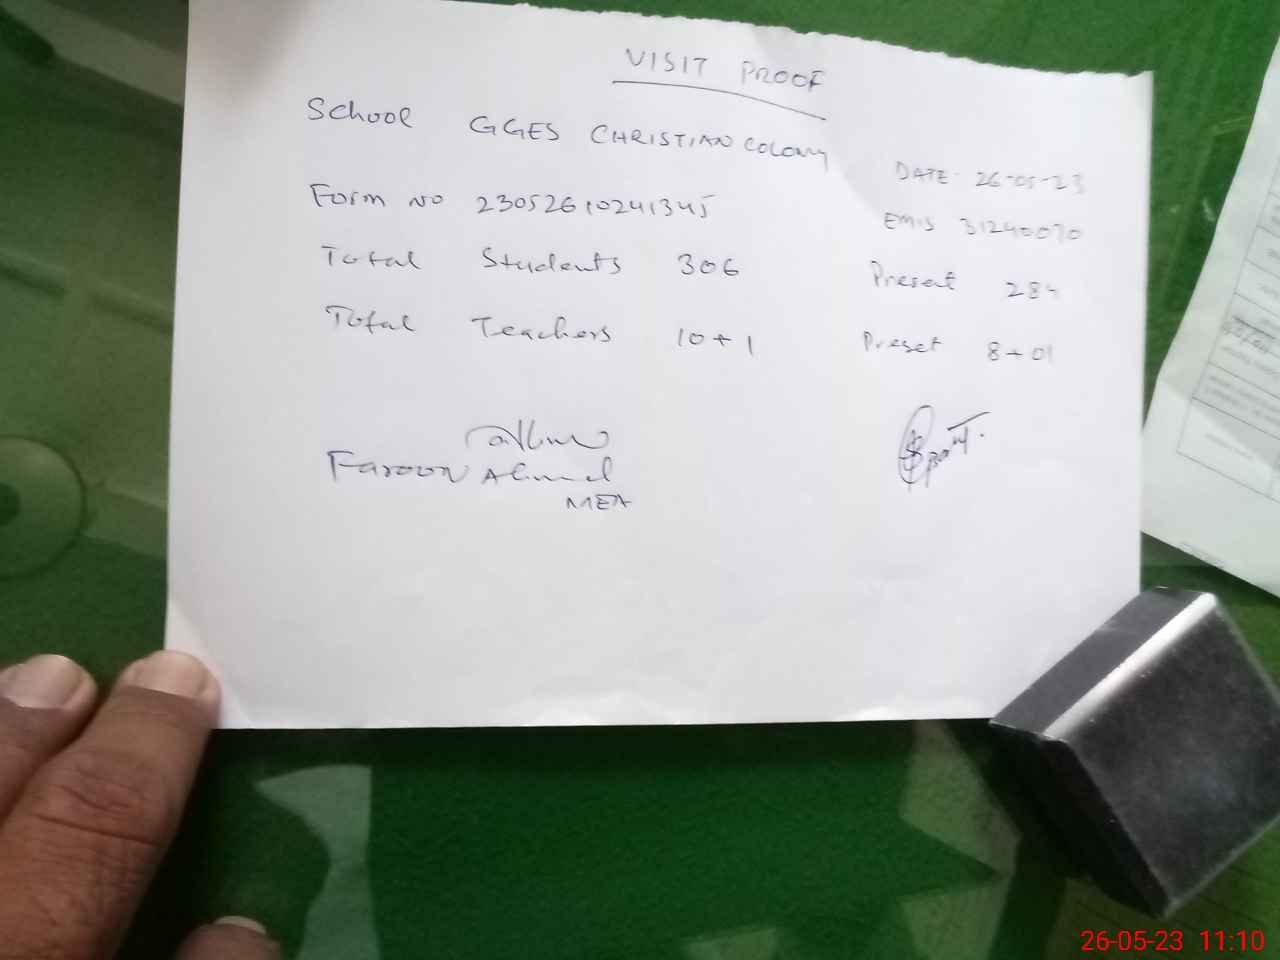 VISIT PROOF
School GGES CHRISTIAN COLONY
DATE- 26-05-23
Form No 23052610241345
EMIS 31240070
Total Students 306 Present 284
Total Teachers 10+1 Preset 8+01
Faroon Ahmed
MEA
26-05-23 11:10